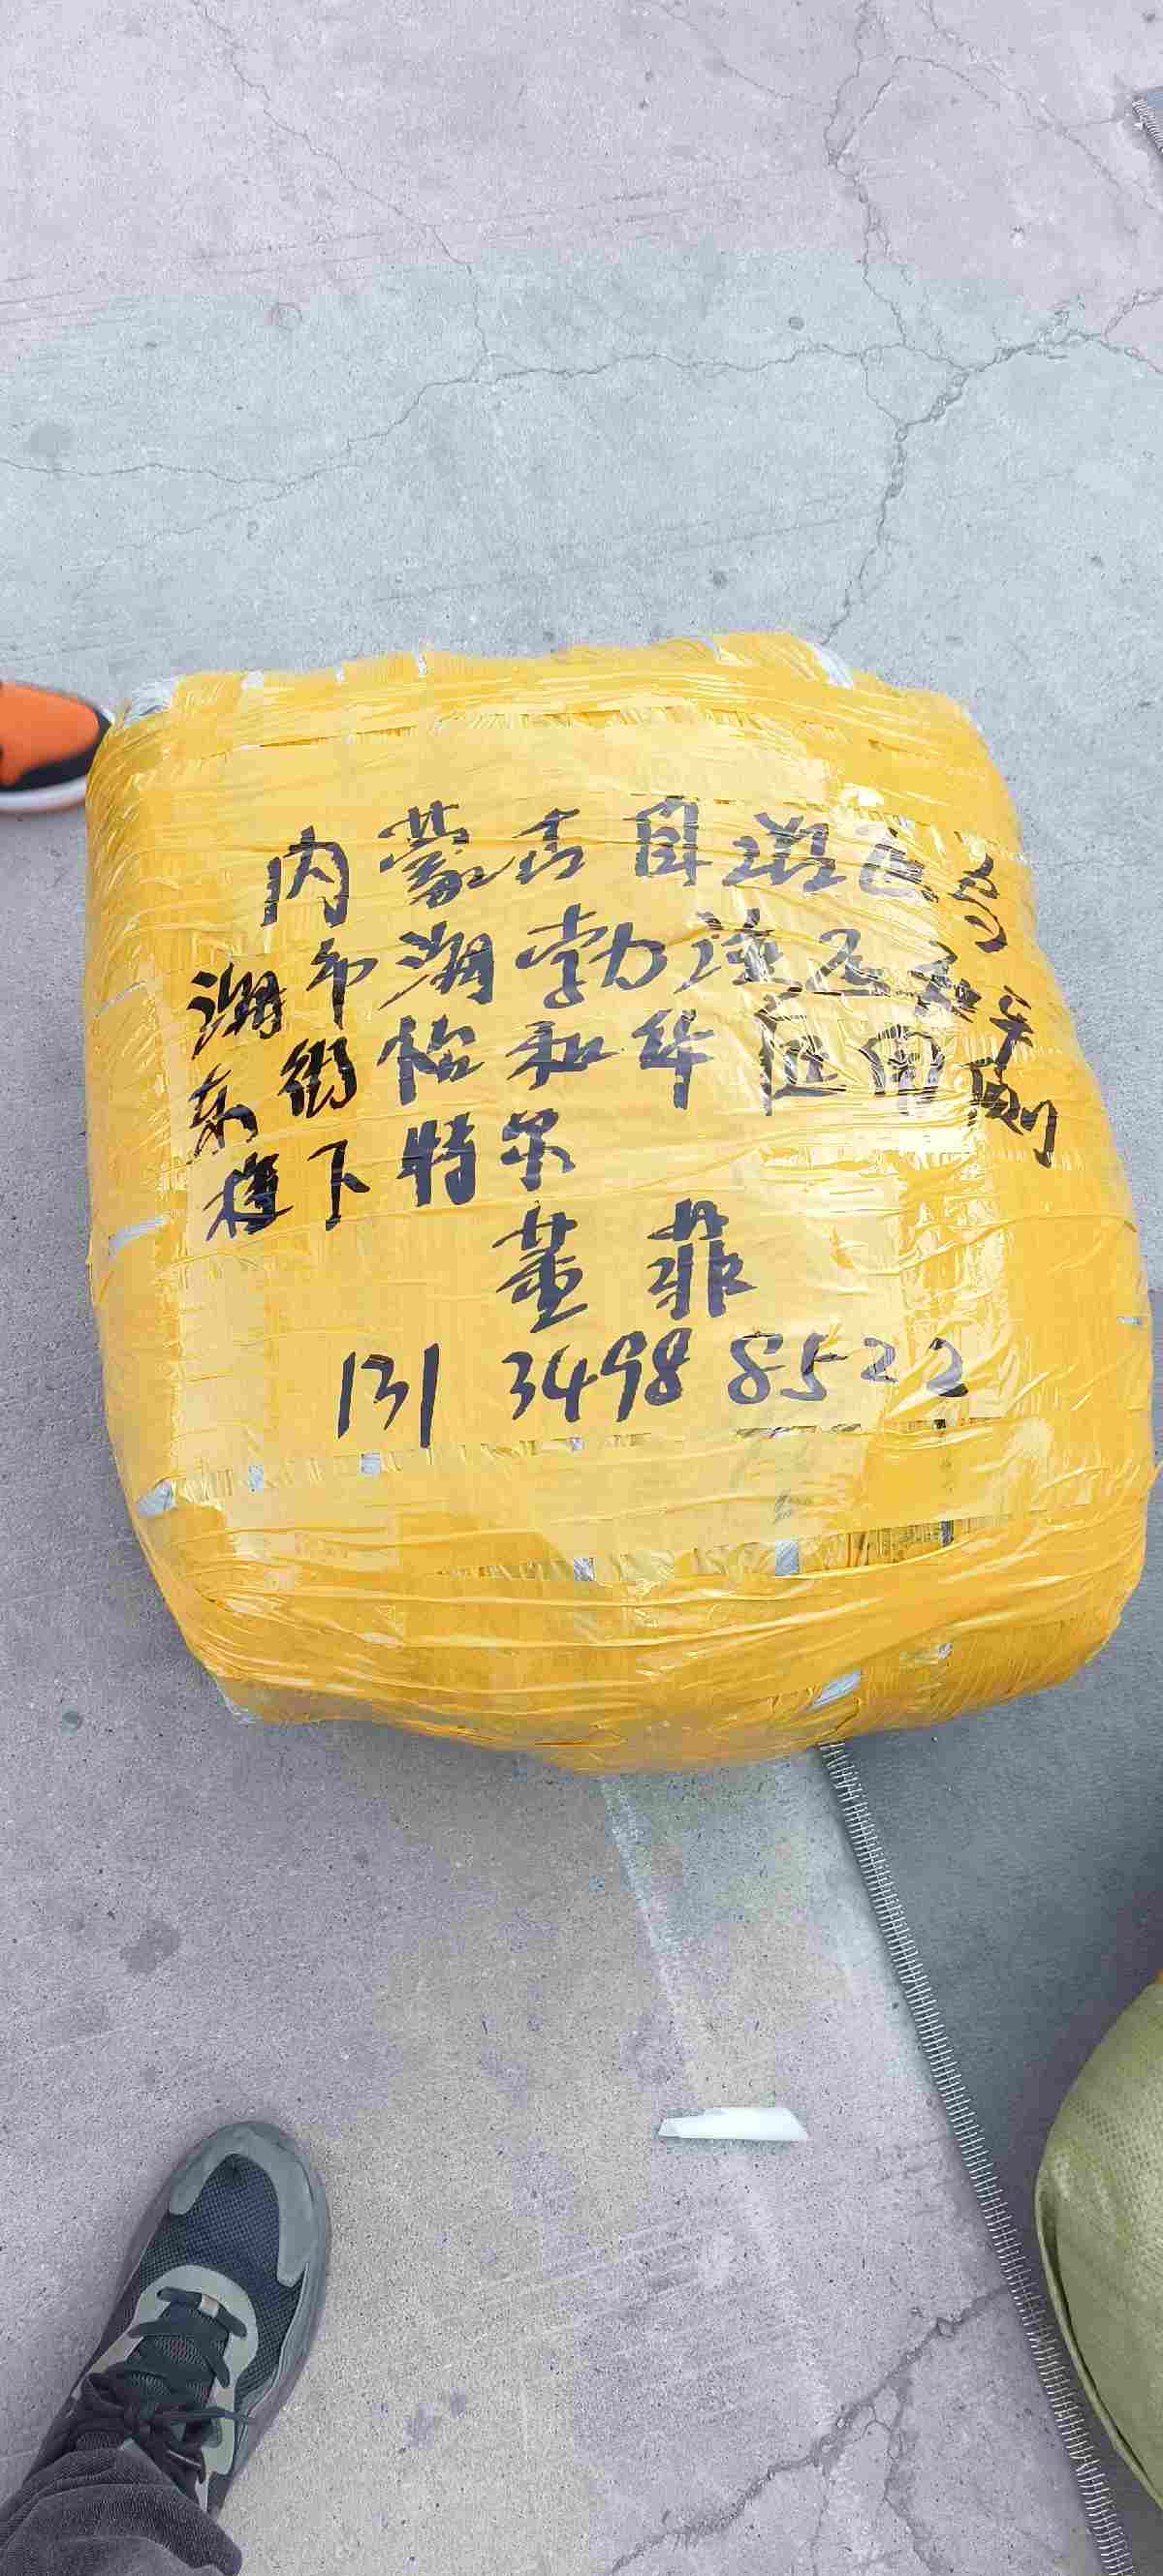 内蒙古自治区乌
海市海勃湾区和平
东街怡和华庭南侧
楼下特尔
董菲
131 3498 8522